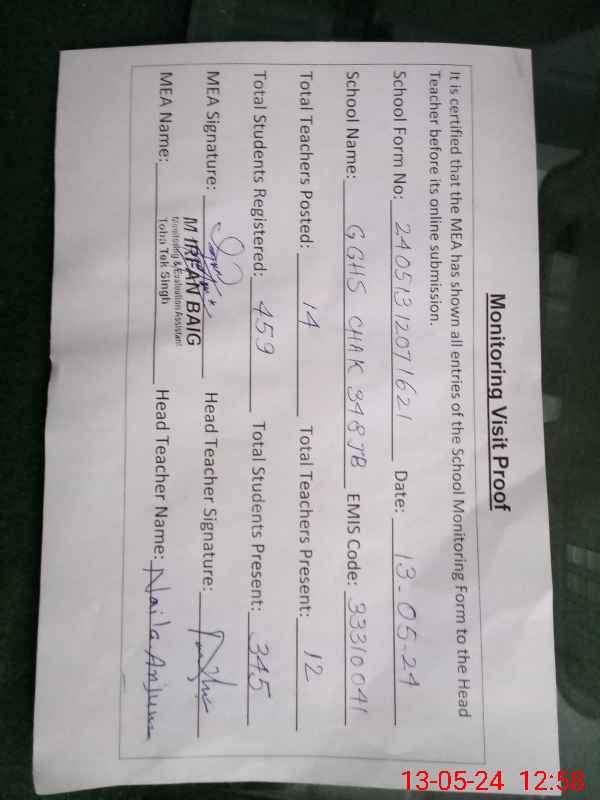 Monitoring Visit Proof
It is certified that the MEA has shown all entries of the School Monitoring Form to the Head
Teacher before its online submission.
School Form No: 24051312071621 Date: 13-05-24
School Name: GGHS CHAK 348JB EMIS Code: 33310041
Total Teachers Posted: 14 Total Teachers Present: 12
Total Students Registered: 459 Total Students Present: 345
MEA Signature: Head Teacher Signature:
M IRFAN BAIG
Monitoring & Evaluation Assistant
Toba Tek Singh
MEA Name: Head Teacher Name: Naila Anjum
13-05-24 12:58